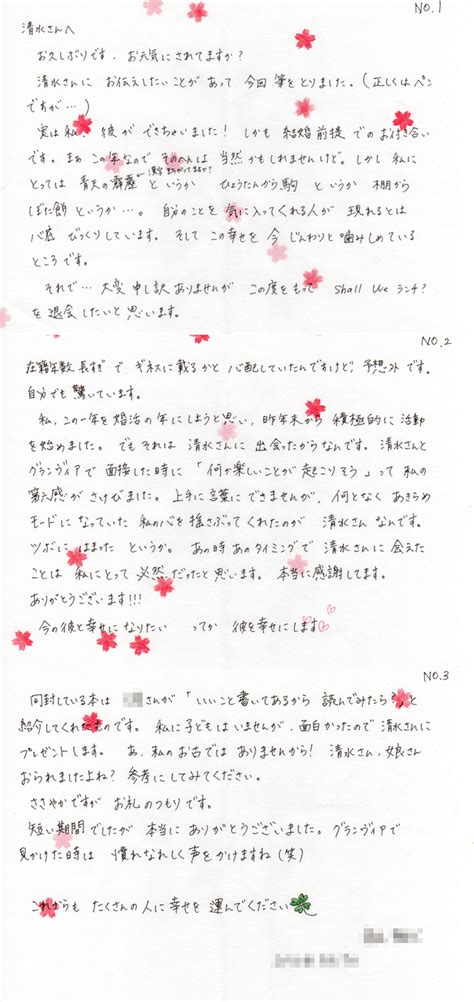 NO.1
清水さんへ
お久しぶりです。お元気にされてますか?
清水さんに お伝えしたいことが あって 今回 筆をとりました。(正しくはペン
ですが…)
実は私、彼が できちゃいました! しかも 結婚前提 での お付き合い
です。まぁ この年なので そのへんは 当然 かもしれませんけど。しかし 私に
とっては 青天の霹靂 というか ひょうたんから駒 というか 棚から
ぼた餅 というか…。自分のことを 気に入ってくれる人が 現れるとは
心底 びっくりしています。そして この幸せを 今 じんわりと噛みしめている
ところです。
それで… 大変 申し訳 ありませんが この度をもって Shall We ランチ?
を退会したいと 思います。
NO.2
在籍年数 長すぎで ギネスに載るかと 心配していたんですけど、予想外です。
自分でも 驚いています。
私、この一年を 婚活の年にしようと思い、昨年末から 積極的に 活動
を始めました。でもそれは 清水さんに 出会ったからなんです。清水さんと
グランヴィアで 面接した時に 「何か楽しいことが 起こりそう」って 私の
第六感が さけびました。上手に言葉に できませんが、何となく あきらめ
モードに なっていた 私の心を 揺さぶってくれたのが 清水さん なんです。
ツボに はまった というか。あの時 あのタイミングで 清水さんに会えた
ことは 私にとって 必然だったと思います。本当に 感謝してます。
ありがとうございます!!!
今の彼と幸せになりたい ってか 彼を幸せにします
NO.3
同封している本は さんが「いいこと書いてあるから 読んでみたら?」と
紹介してくれたものです。私に子どもは いませんが、面白かったので 清水さんに
プレゼントします。あ、私のお古では ありませんから! 清水さん、娘さん
おられましたよね? 参考にしてみてください。
ささやかですが お礼のつもりです。
短い期間でしたが 本当に ありがとうございました。グランヴィアで
見かけた時は 慣れなれしく声をかけますね(笑)
これからも たくさんの人に幸せを 運んでください